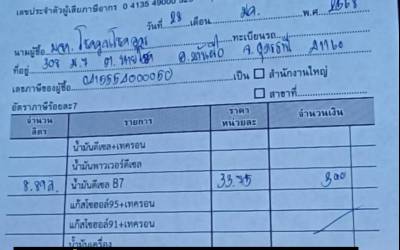 เลขประจำตัวผู้เสียภาษีอากร 0 4135 49000 525
วันที่ 28 เดือน พ.ค. พ.ศ. 2568
นามผู้ซื้อ ทะเบียนรถ
ที่อยู่ 308 ม.7 ต. อ. จ. อุดรธานี 41160
เลขภาษีของผู้ซื้อ 0415554000050 เป็น ☐ สำนักงานใหญ่
อัตราภาษีร้อยละ 7 ☐ สาขาที่
จำนวนลิตร รายการ ราคาหน่วยละ จำนวนเงิน
น้ำมันดีเซล+เทครอน
น้ำมันพาวเวอร์ดีเซล
8.89 ล. น้ำมันดีเซล B7 33.75 300
แก๊สโซฮอล์95+เทครอน
แก๊สโซฮอล์91+เทครอน
น้ำมันเครื่อง